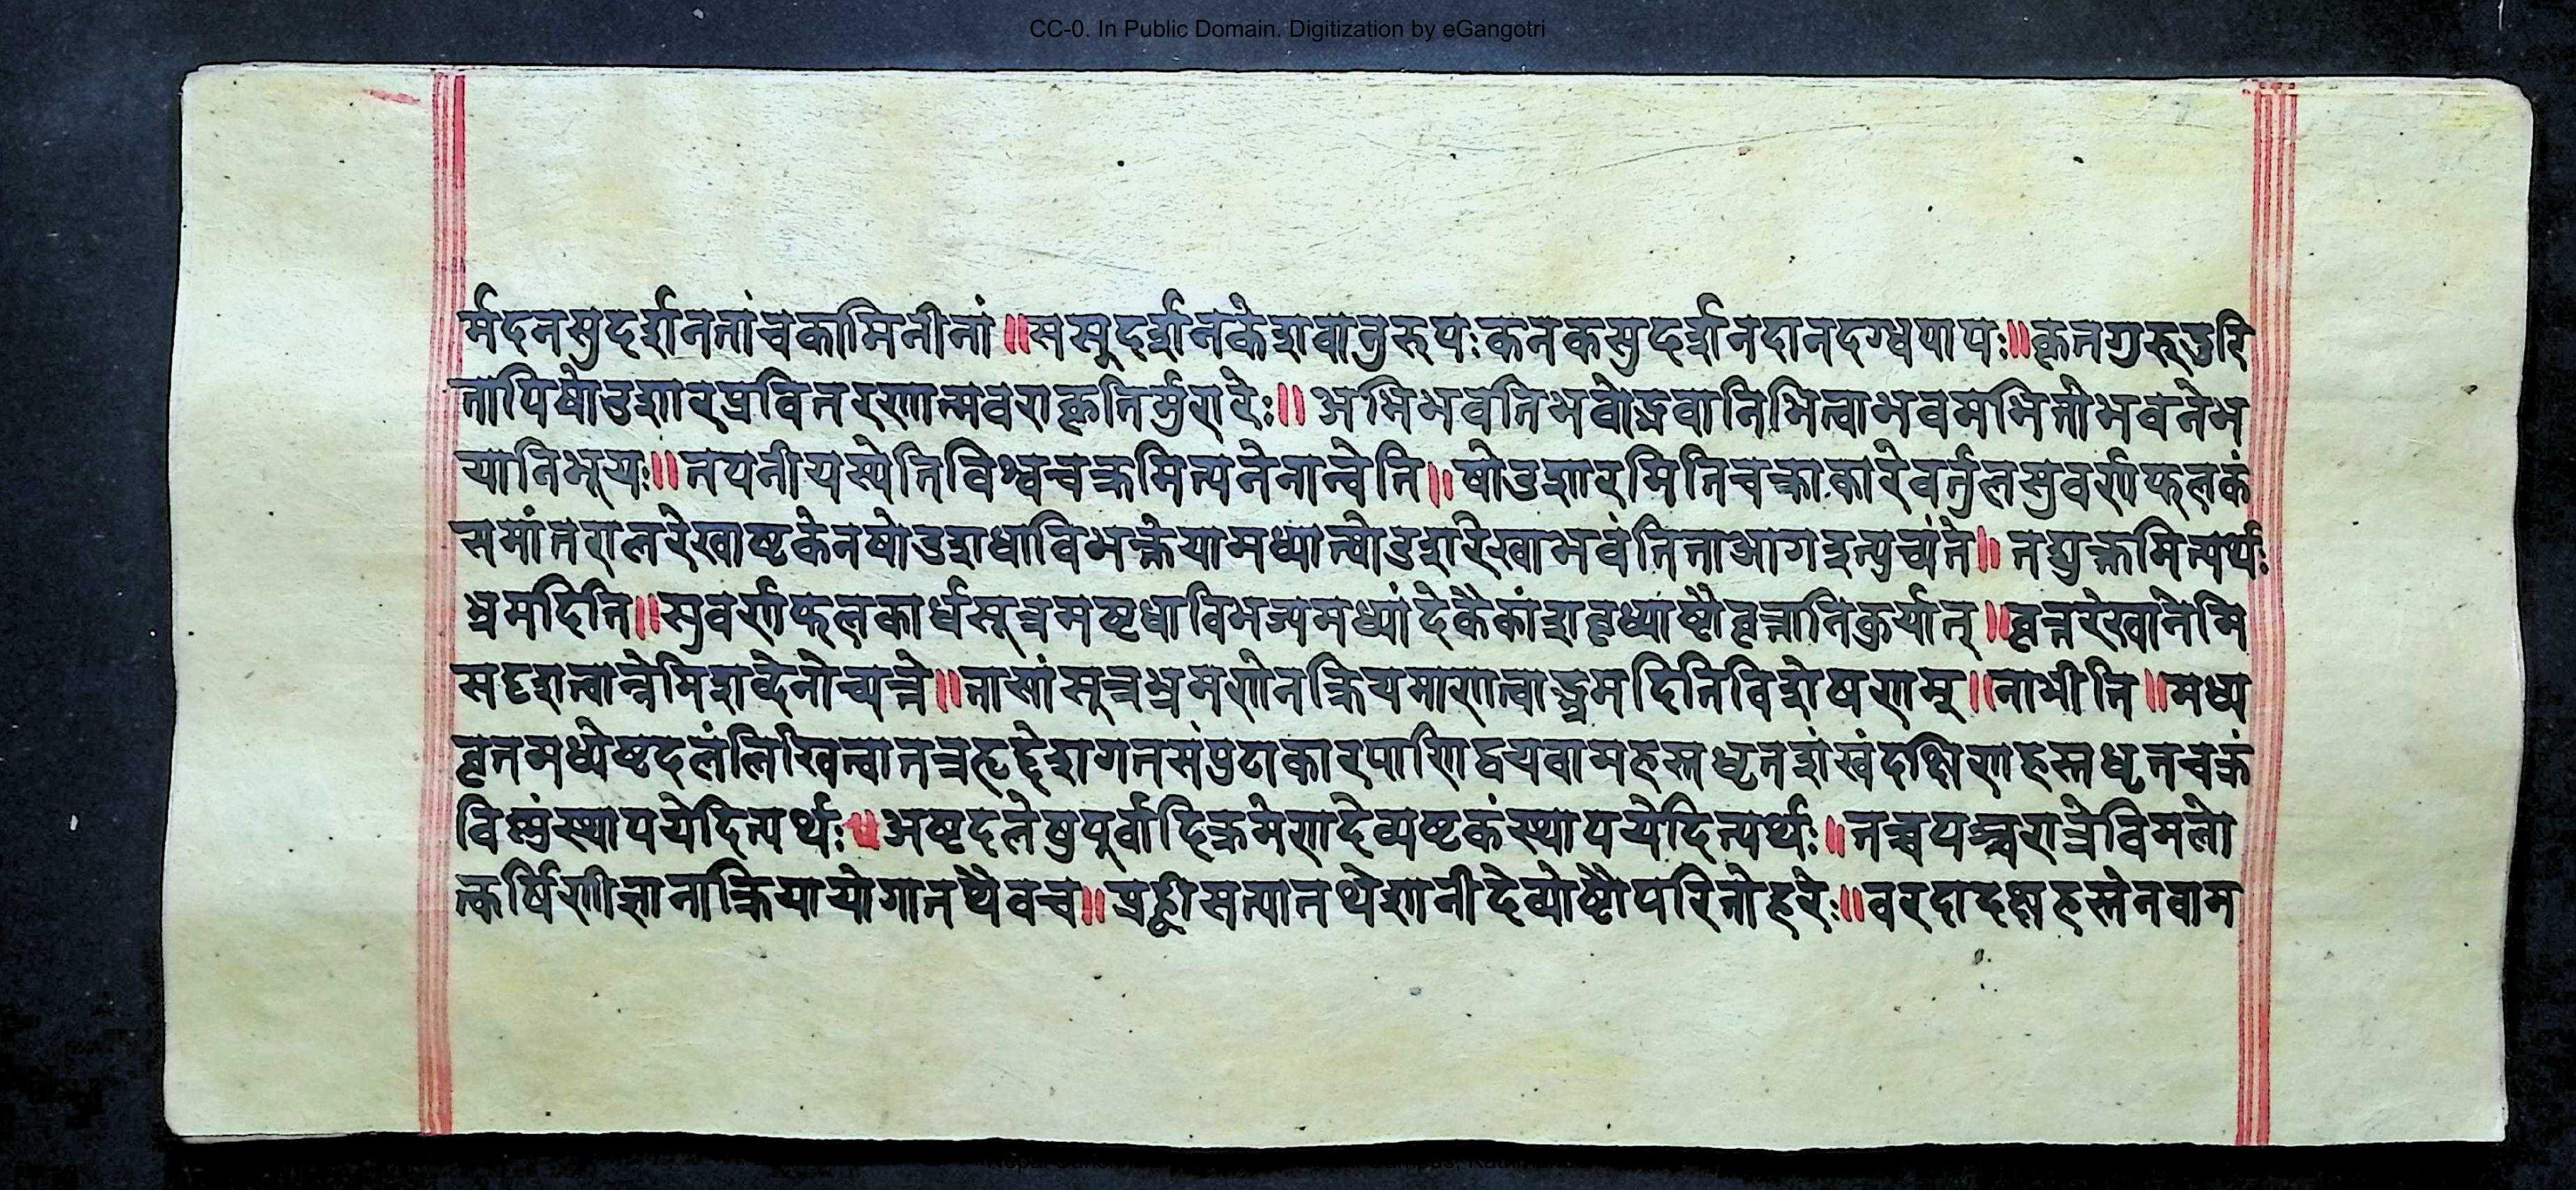 CC-0. In Public Domain. Digitization by eGangotri
र्मदनसुदर्शनतांचकामिनीनां॥ससुदर्शनकेशवानुरुपःकनकसुदर्शनदानदग्धपापः॥कृतगुरुदुरि
तापिषोडशारप्रवितरणान्मवराकृतिर्मुरारेः॥अभिभवतिभवोद्भवानिभित्वाभवमभितोभवनेभ
यानिभूयः॥तपनीयस्येतिविश्वचक्रमित्यनेनान्वेति॥षोडशारमितिचक्राकारेवर्तुलसुवर्णफलकं
समांतरालरेखाष्टकेनषोडशधाविभक्तेयामध्यात्षोडशरेखाभवंतिताआगइत्युच्यंते॥तद्युक्तमित्यर्थः
भ्रमदिति॥सुवर्णफलकार्धसूत्रमष्टधाविभज्यमध्यांदेकैकांशवृध्याष्टौवृत्तानिकुर्यात्॥वृत्तरेखानेमि
सदृशत्वान्नेमिशब्देनोच्यन्ते॥तासांसूत्रभ्रमणेनक्रियमाणत्वाद्भ्रमदितिविशेषणम्॥नाभीति॥मध्य
वृतमध्येष्टदलंलिखित्वातत्रहृद्देशगतसंपुटाकारपाणिद्वयवामहस्तधृतशंखंदक्षिणहस्तधृतचक्रं
विष्णुंस्थापयेदित्यर्थः॥अष्टदलेषुपूर्वादिक्रमेणदेव्यष्टकंस्थापयेदित्यर्थः॥तच्चपञ्चरात्रेविमलो
त्कर्षिणीज्ञानाक्रियायोगातथैवच॥प्रह्वीसत्यातथेशानीदेव्योष्टौपरितोहरेः॥वरदादक्षहस्तेनवाम